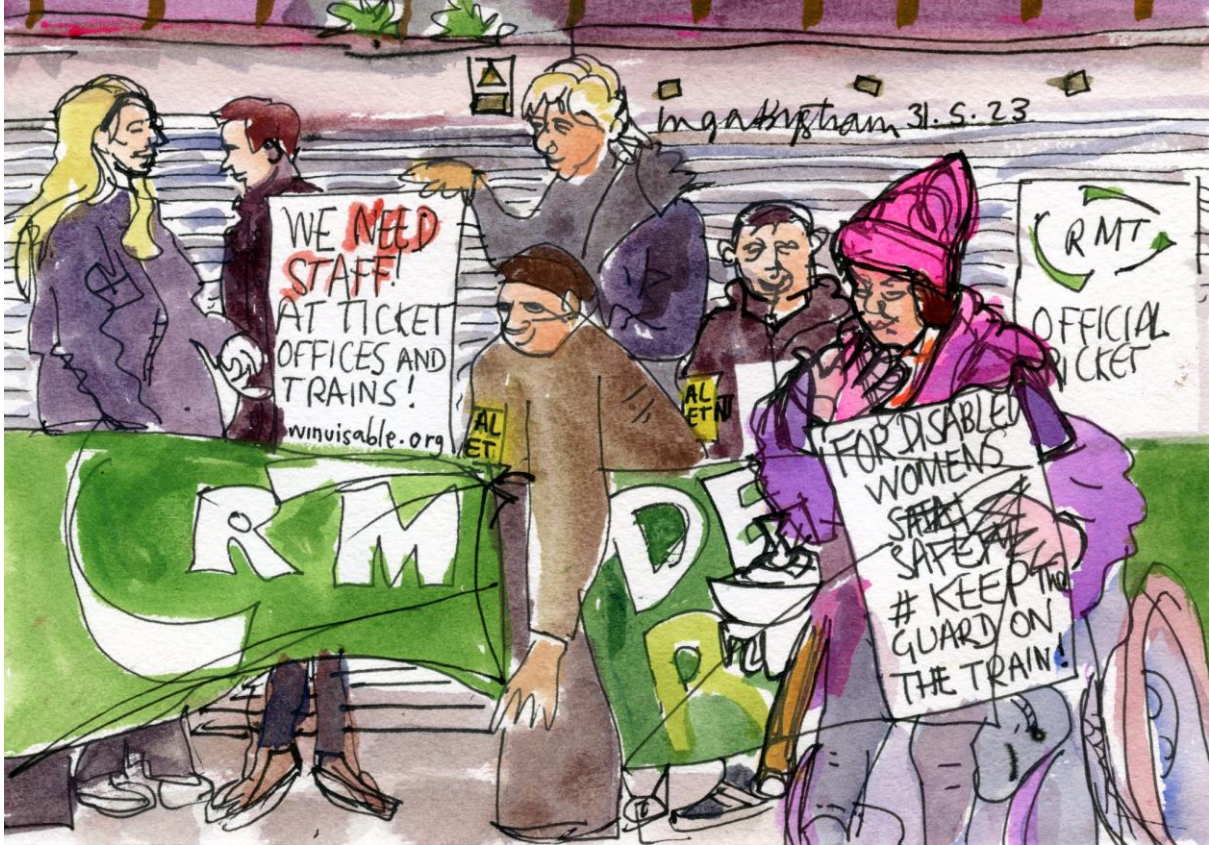 31.5.23
WE NEED
STAFF!
AT TICKET
OFFICES AND
TRAINS!
winvisable.org
RMT
OFFICIAL
AL
ET
AL
ET
FOR DISABLED
WOMENS
SAFETY
# KEEP The
GUARD ON
THE TRAIN!
RM
DE